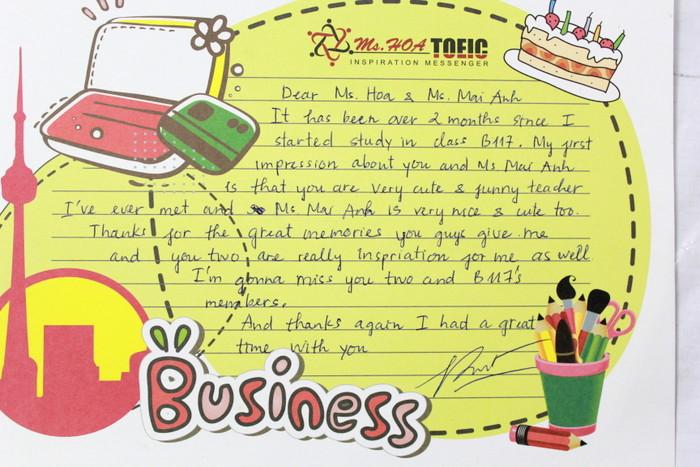 Ms. HOA TOEIC
INSPIRATION MESSENGER
Dear Ms. Hoa & Ms. Mai Anh
It has been over 2 months since I
started study in class B117. My first
impression about you and Ms Mai Anh
is that you are very cute & funny teacher
I've ever met and Ms. Mai Anh is very nice & cute too.
Thanks for the great memories you guys give me
and you two are really inspriation for me as well.
I'm gonna miss you two and B117's
members.
And thanks again I had a great
time with you
Business